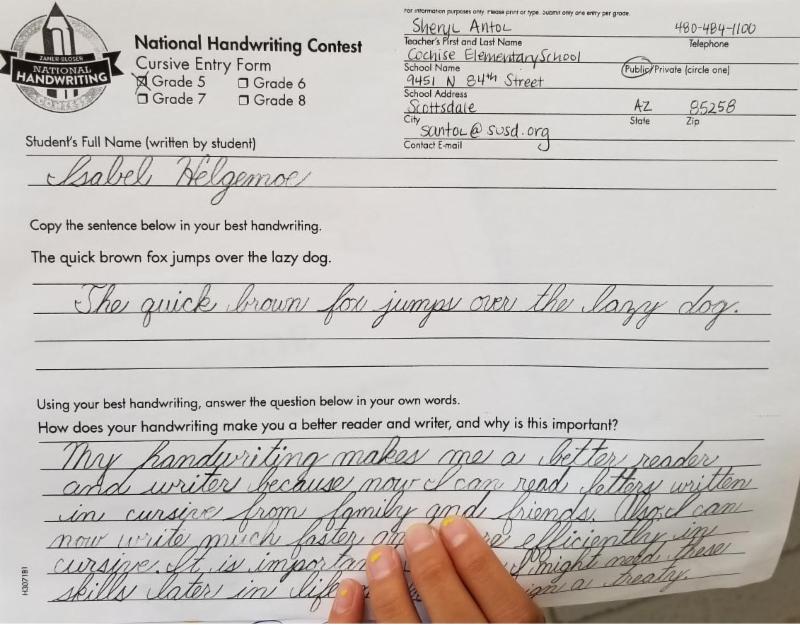 For information purposes only. Please print or type. Submit only one entry per grade.
ZANER-BLOSER
NATIONAL
HANDWRITING
CONTEST
National Handwriting Contest
Cursive Entry Form
Grade 5
Grade 6
Grade 7
Grade 8
Sheryl Antol
480-484-1100
Teacher's First and Last Name
Telephone
Cochise Elementary School
School Name
Public/Private (circle one)
9451 N 84th Street
School Address
Scottsdale
AZ
85258
City
State
Zip
santol@susd.org
Contact E-mail
Student's Full Name (written by student)
Isabel Helgemoe
Copy the sentence below in your best handwriting.
The quick brown fox jumps over the lazy dog.
The quick brown fox jumps over the lazy dog.
Using your best handwriting, answer the question below in your own words.
How does your handwriting make you a better reader and writer, and why is this important?
My handwriting makes me a better reader
and writer because now I can read letters written
in cursive from family and friends. Also, I can
now write much faster efficiently in
cursive. It is I might need these
skills later in life a treaty.
H3071B1